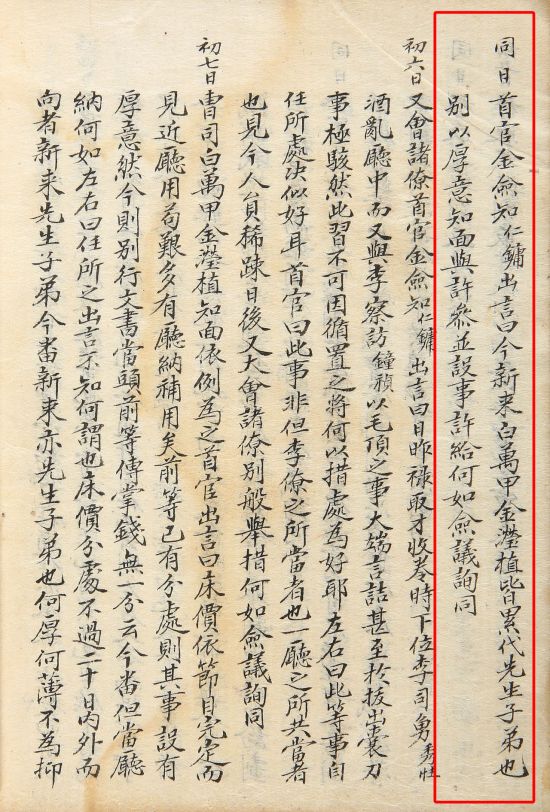 同日首官金僉知仁鏞出言曰今新来白萬甲金瀅植皆累代先生子弟也
別以厚意知面與許參並設事許給何如僉議詢同
初六日又會諸僚首官金僉知仁鏞出言曰日昨祿取才收巻時下位李司勇秀恒
酒亂廳中而又與李察訪鐘禎以毛頂之事大端言詰甚至於拔出裳刀
事極駭然此習不可因循置之將何以措處為好耶左右曰此等事自
任所處决似好耳首官曰此事非但李僚之所當者也一廳之所共當者
也見今人員稀踈日後又大會諸僚別般舉措何如僉議詢同
初七日曺司白萬甲金瀅植知面依例為之首官出言曰床價依節目完定而
見近廳用苟艱多有廳納補用矣前等已有分處則其事設有
厚意然今則別行文書當頭前等傳掌錢無一分云今畨但當廳
納何如左右曰任所之出言不知何謂也床價分處不過二十日內外而
向者新来先生子弟今畨新来亦先生子弟也何厚何薄不為抑